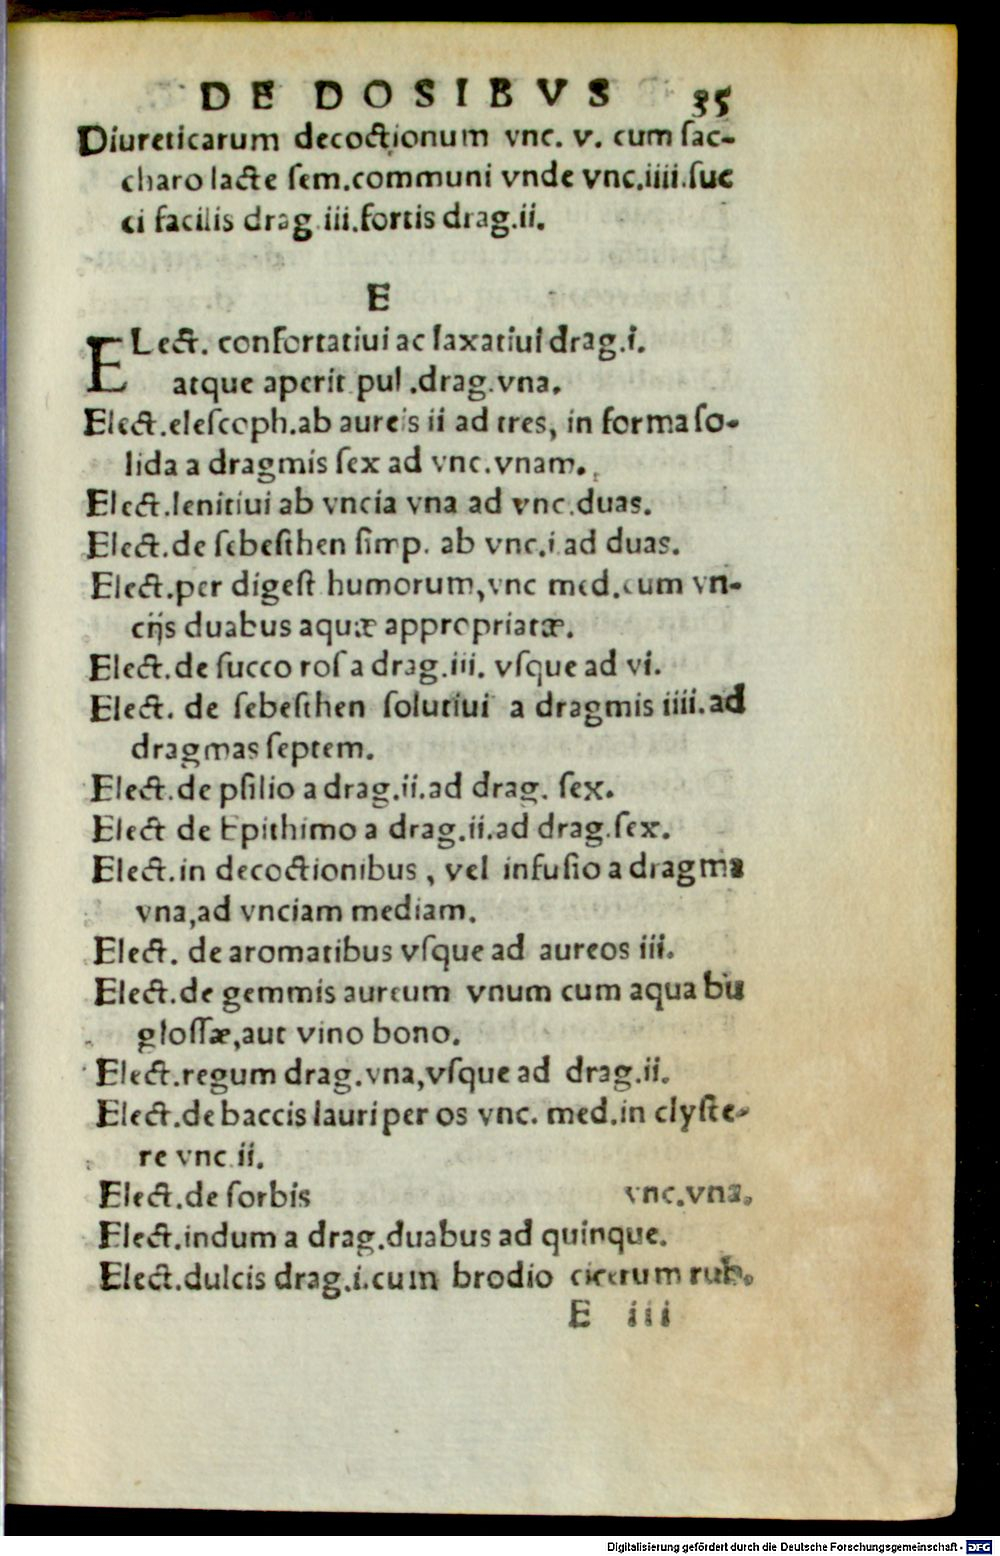 DE DOSIBVS 35
Diureticarum decoctionum vnc. v. cum ſac-
charo lacte ſem.communi vnde vnc.iiii.ſuc
ci facilis drag.iii.fortis drag.ii.
E
ELect. confortatiui ac laxatiui drag.i.
atque aperit pul.drag.vna.
Elect.eleſcoph.ab aureis ii ad tres, in forma ſo-
lida a dragmis ſex ad vnc.vnam.
Elect.lenitiui ab vncia vna ad vnc.duas.
Elect.de ſebeſthen ſimp. ab vnc.i.ad duas.
Elect.per digeſt humorum,vnc med.cum vn-
cijs duabus aquæ appropriatæ.
Elect.de ſucco roſ a drag.iii. vſque ad vi.
Elect. de ſebeſthen ſolutiui a dragmis iiii.ad
dragmas ſeptem.
Elect.de pſilio a drag.ii.ad drag. ſex.
Elect de Epithimo a drag.ii.ad drag.ſex.
Elect.in decoctionibus, vel infuſio a dragma
vna,ad vnciam mediam.
Elect. de aromatibus vſque ad aureos iii.
Elect.de gemmis aureum vnum cum aqua bu
gloſſæ,aut vino bono.
Elect.regum drag.vna,vſque ad drag.ii.
Elect.de baccis lauri per os vnc. med.in clyſte-
re vnc.ii.
Elect.de ſorbis vnc.vna.
Elect.indum a drag.duabus ad quinque.
Elect.dulcis drag.i.cum brodio cicerum rub.
E iii
Digitalisierung gefördert durch die Deutsche Forschungsgemeinschaft - DFG